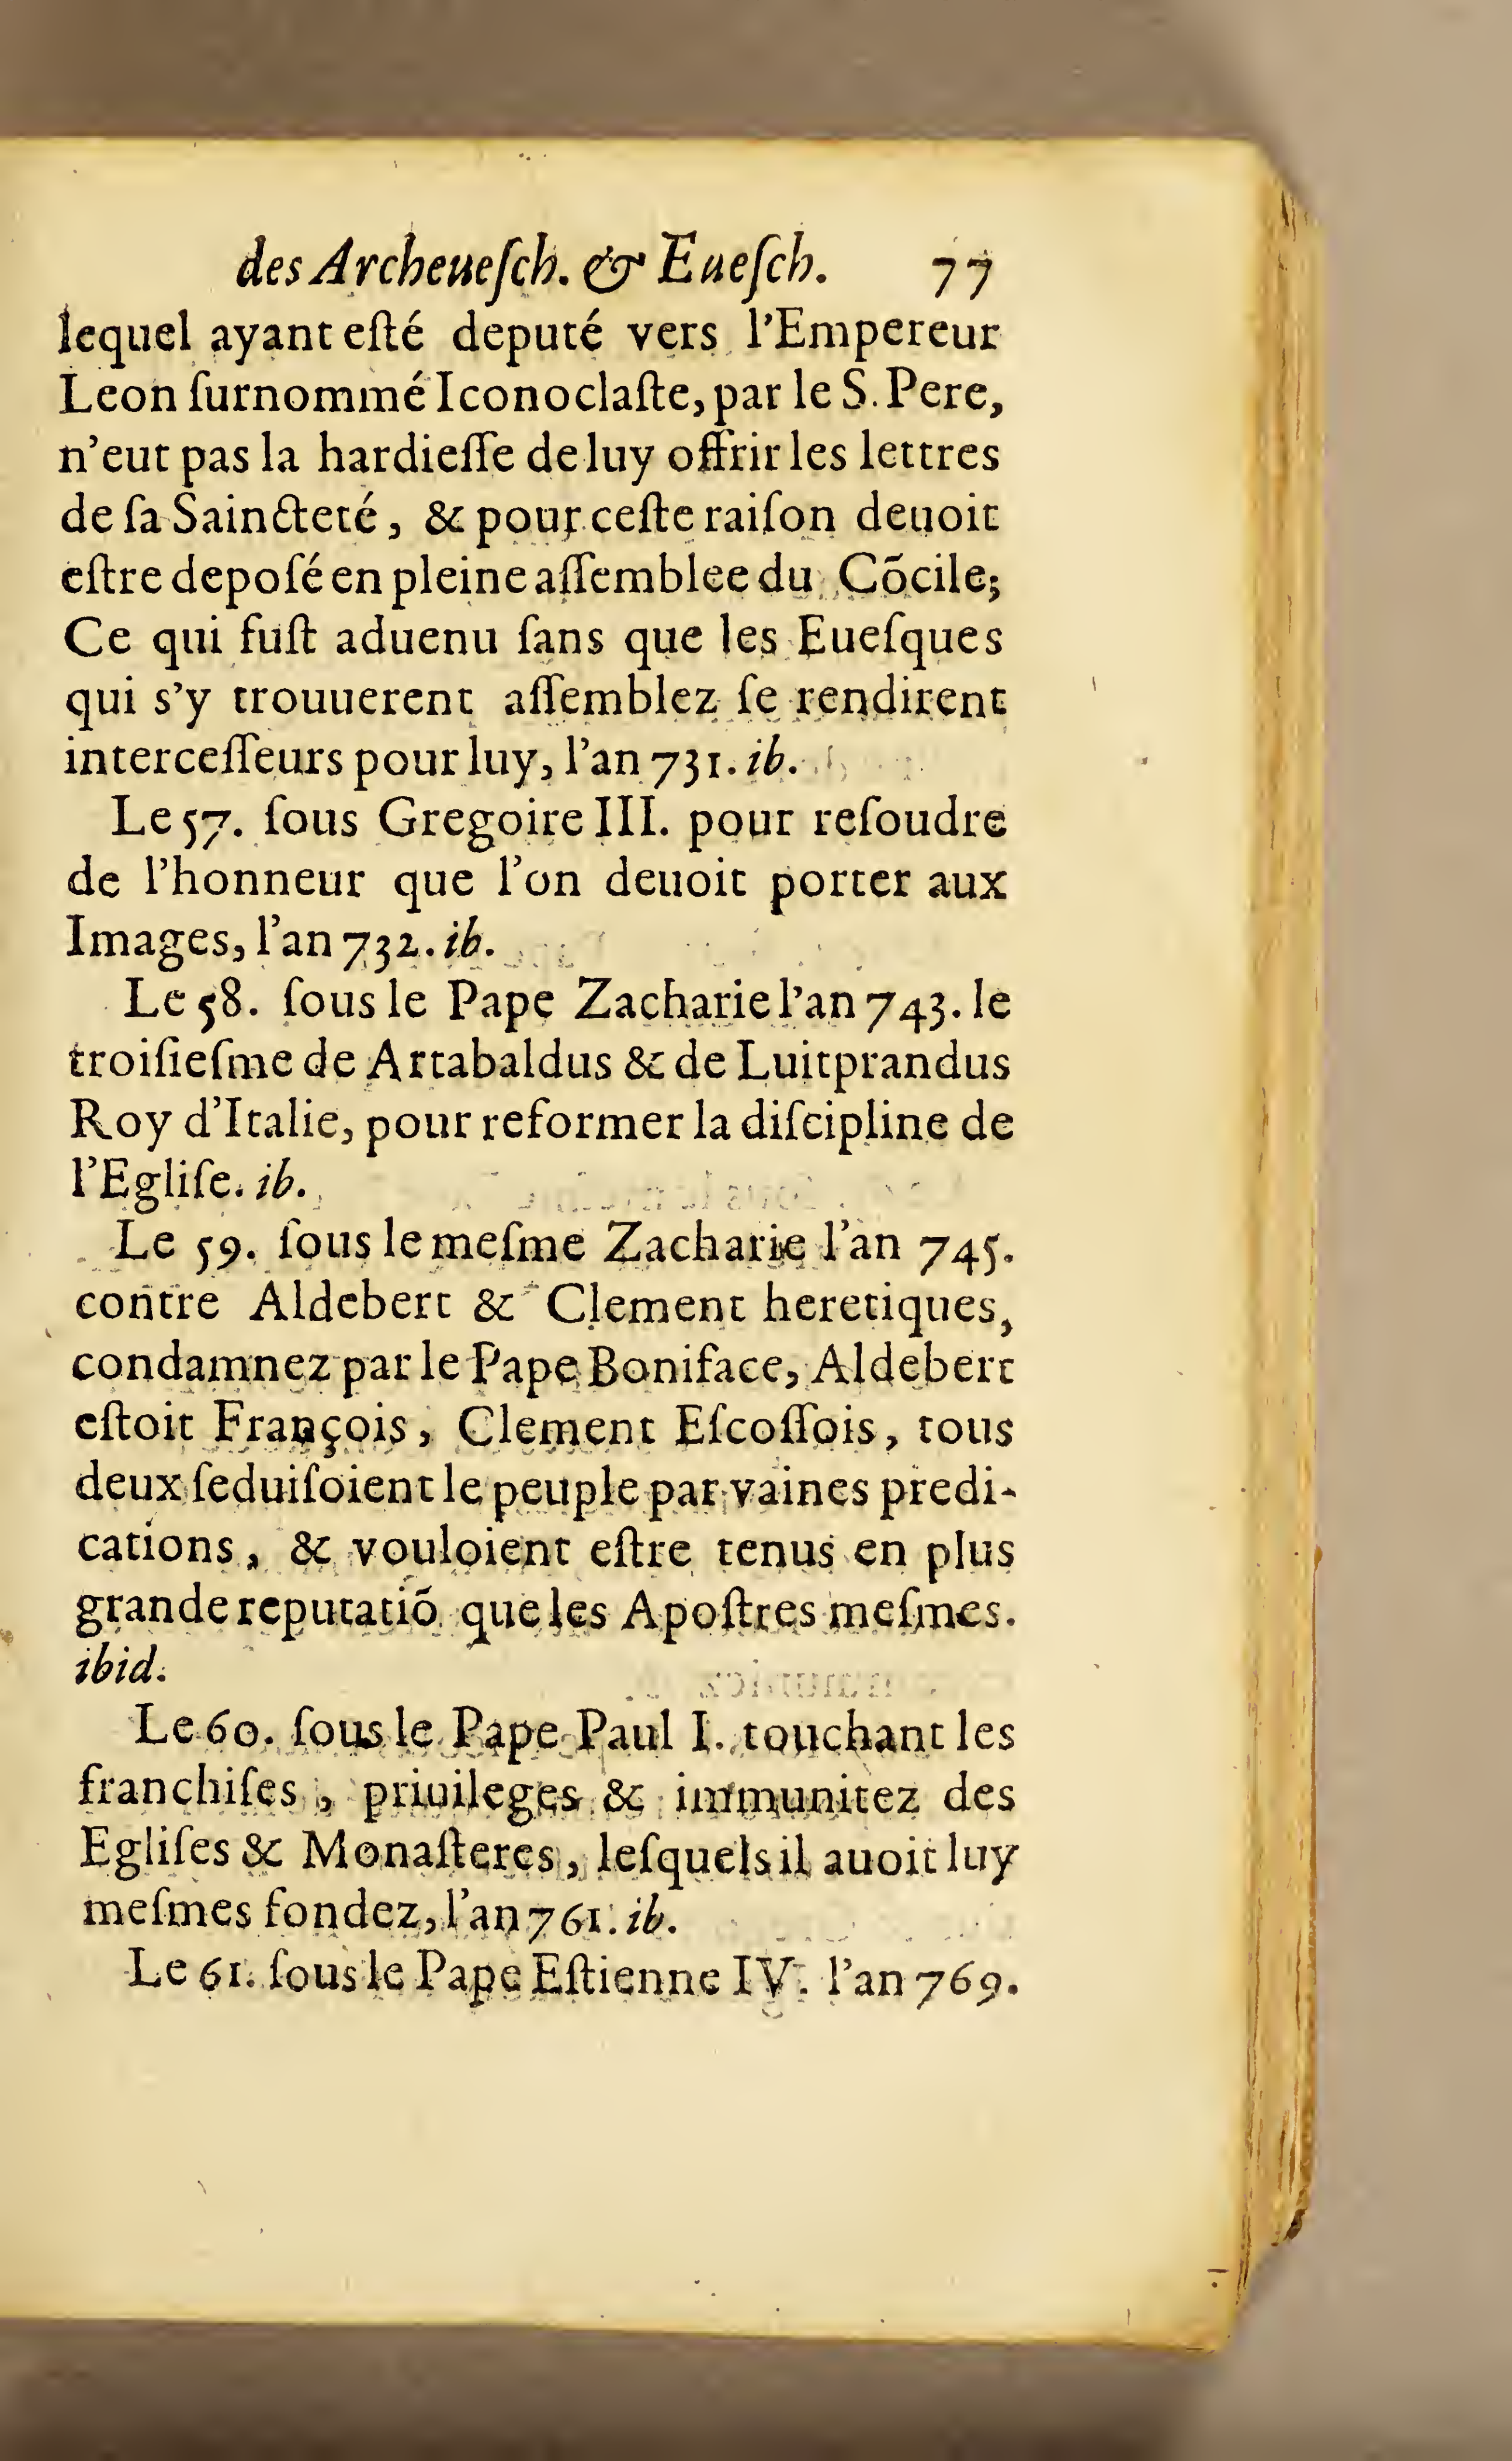 des Archeueſch. & Eueſch. 77
lequel ayant eſté deputé vers l'Empereur
Leon ſurnommé Iconoclaſte, par le S. Pere,
n'eut pas la hardieſſe de luy offrir les lettres
de ſa Saincteté, & pour ceſte raiſon deuoit
eſtre depoſé en pleine aſſemblee du Cõcile;
Ce qui fuſt aduenu ſans que les Eueſques
qui s'y trouuerent aſſemblez ſe rendirent
interceſſeurs pour luy, l'an 731. ib.
Le 57. ſous Gregoire III. pour reſoudre
de l'honneur que l'on deuoit porter aux
Images, l'an 732. ib.
Le 58. ſous le Pape Zacharie l'an 743. le
troiſieſme de Artabaldus & de Luitprandus
Roy d'Italie, pour reformer la diſcipline de
l'Egliſe. ib.
Le 59. ſous le meſme Zacharie l'an 745.
contre Aldebert & Clement heretiques,
condamnez par le Pape Boniface, Aldebert
eſtoit François, Clement Eſcoſſois, tous
deux ſeduiſoient le peuple par vaines predi-
cations, & vouloient eſtre tenus en plus
grande reputatiõ que les Apoſtres meſmes.
ibid.
Le 60. ſous le Pape Paul I. touchant les
franchiſes, priuileges & immunitez des
Egliſes & Monaſteres, leſquels il auoit luy
meſmes fondez, l'an 761. ib.
Le 61. ſous le Pape Eſtienne IV. l'an 769.